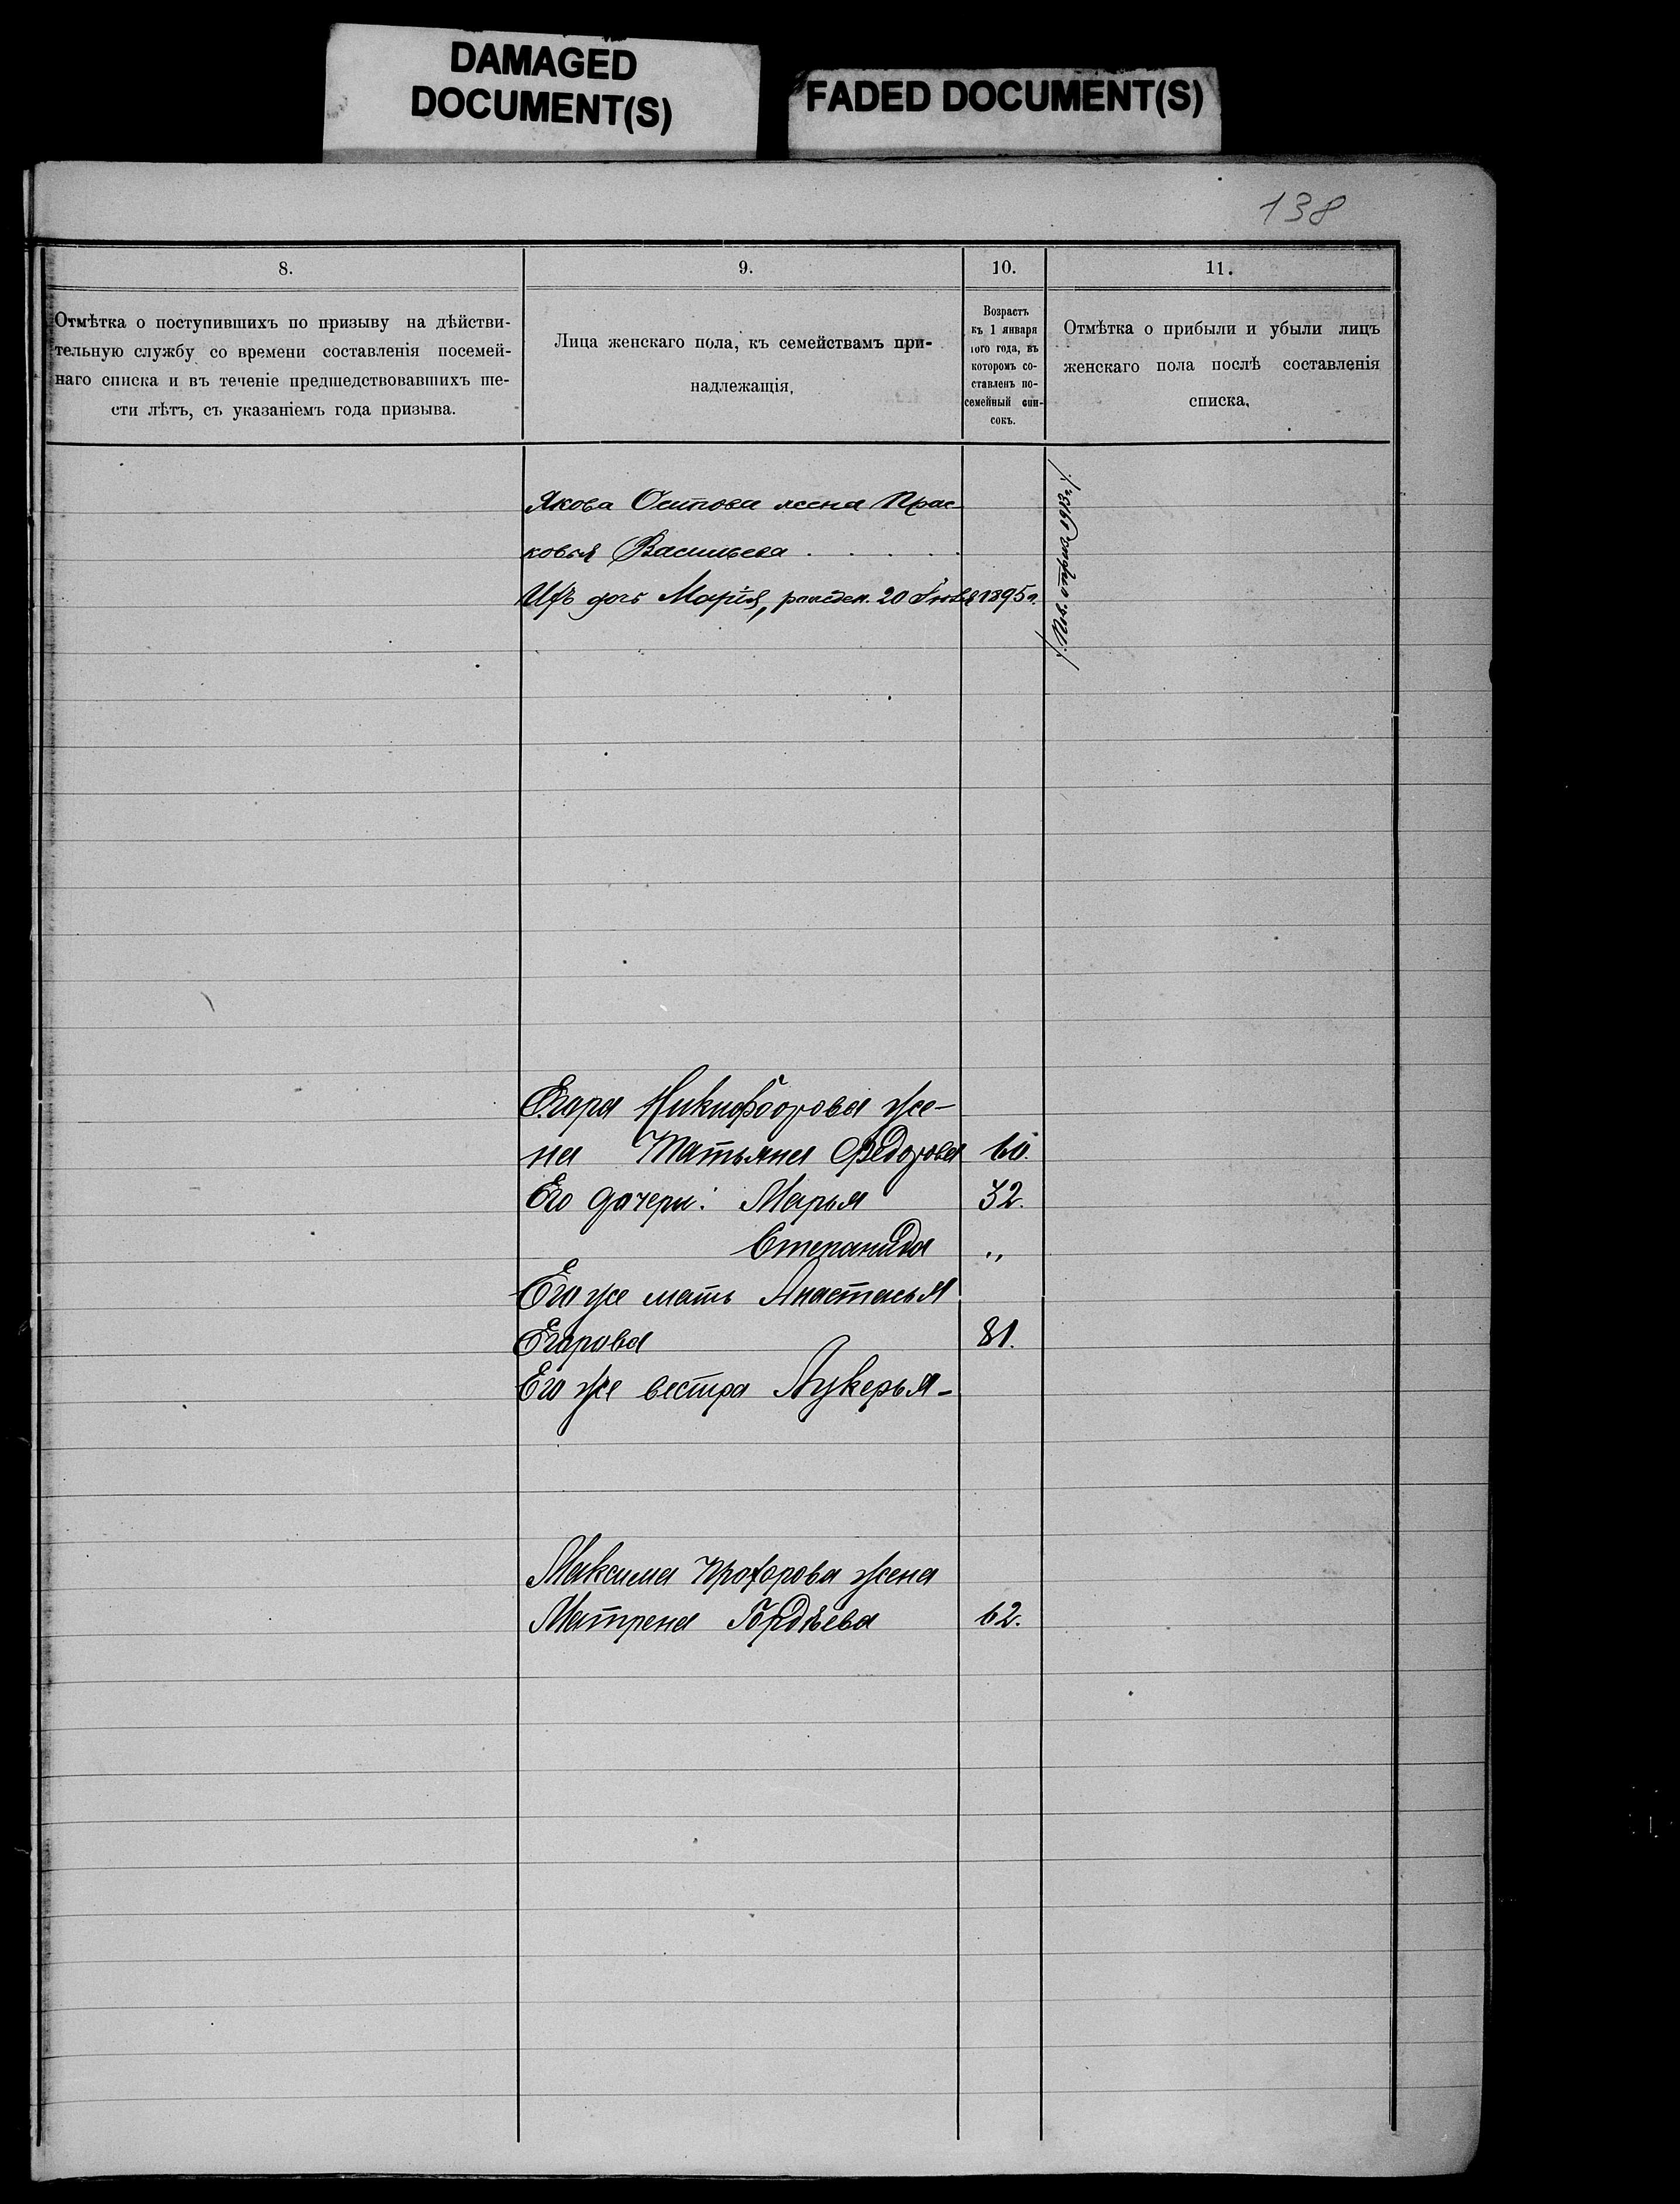 DAMAGED
DOCUMENT(S)
FADED DOCUMENT(S)
138
8.
Отмѣтка о поступившихъ по призыву на дѣйстви-
тельную службу со времени составленія посемей-
наго списка и въ теченіе предшедствовавшихъ ше-
сти лѣтъ, съ указаніемъ года призыва.
9.
Лица женскаго пола, къ семействамъ при-
надлежащія,
10.
Возрастъ
къ 1 января
того года, въ
которомъ со-
ставленъ по-
семейный спи-
сокъ.
11.
Отмѣтка о прибыли и убыли лицъ
женскаго пола послѣ составленія
списка,
Якова Осипова жена Прас
ковья Васильева . . . . .
Ихъ дочь Марія, рожден. 20 Іюля 1895 г.
Егора Никифорова же-
на Татьяна Федорова 60.
Его дочери: Марья 32.
Степанида „
Его же мать Анастасья
Егорова 81.
Его же сестра Лукерья -
Максима Прохорова жена
Матрена Гордѣева 62.